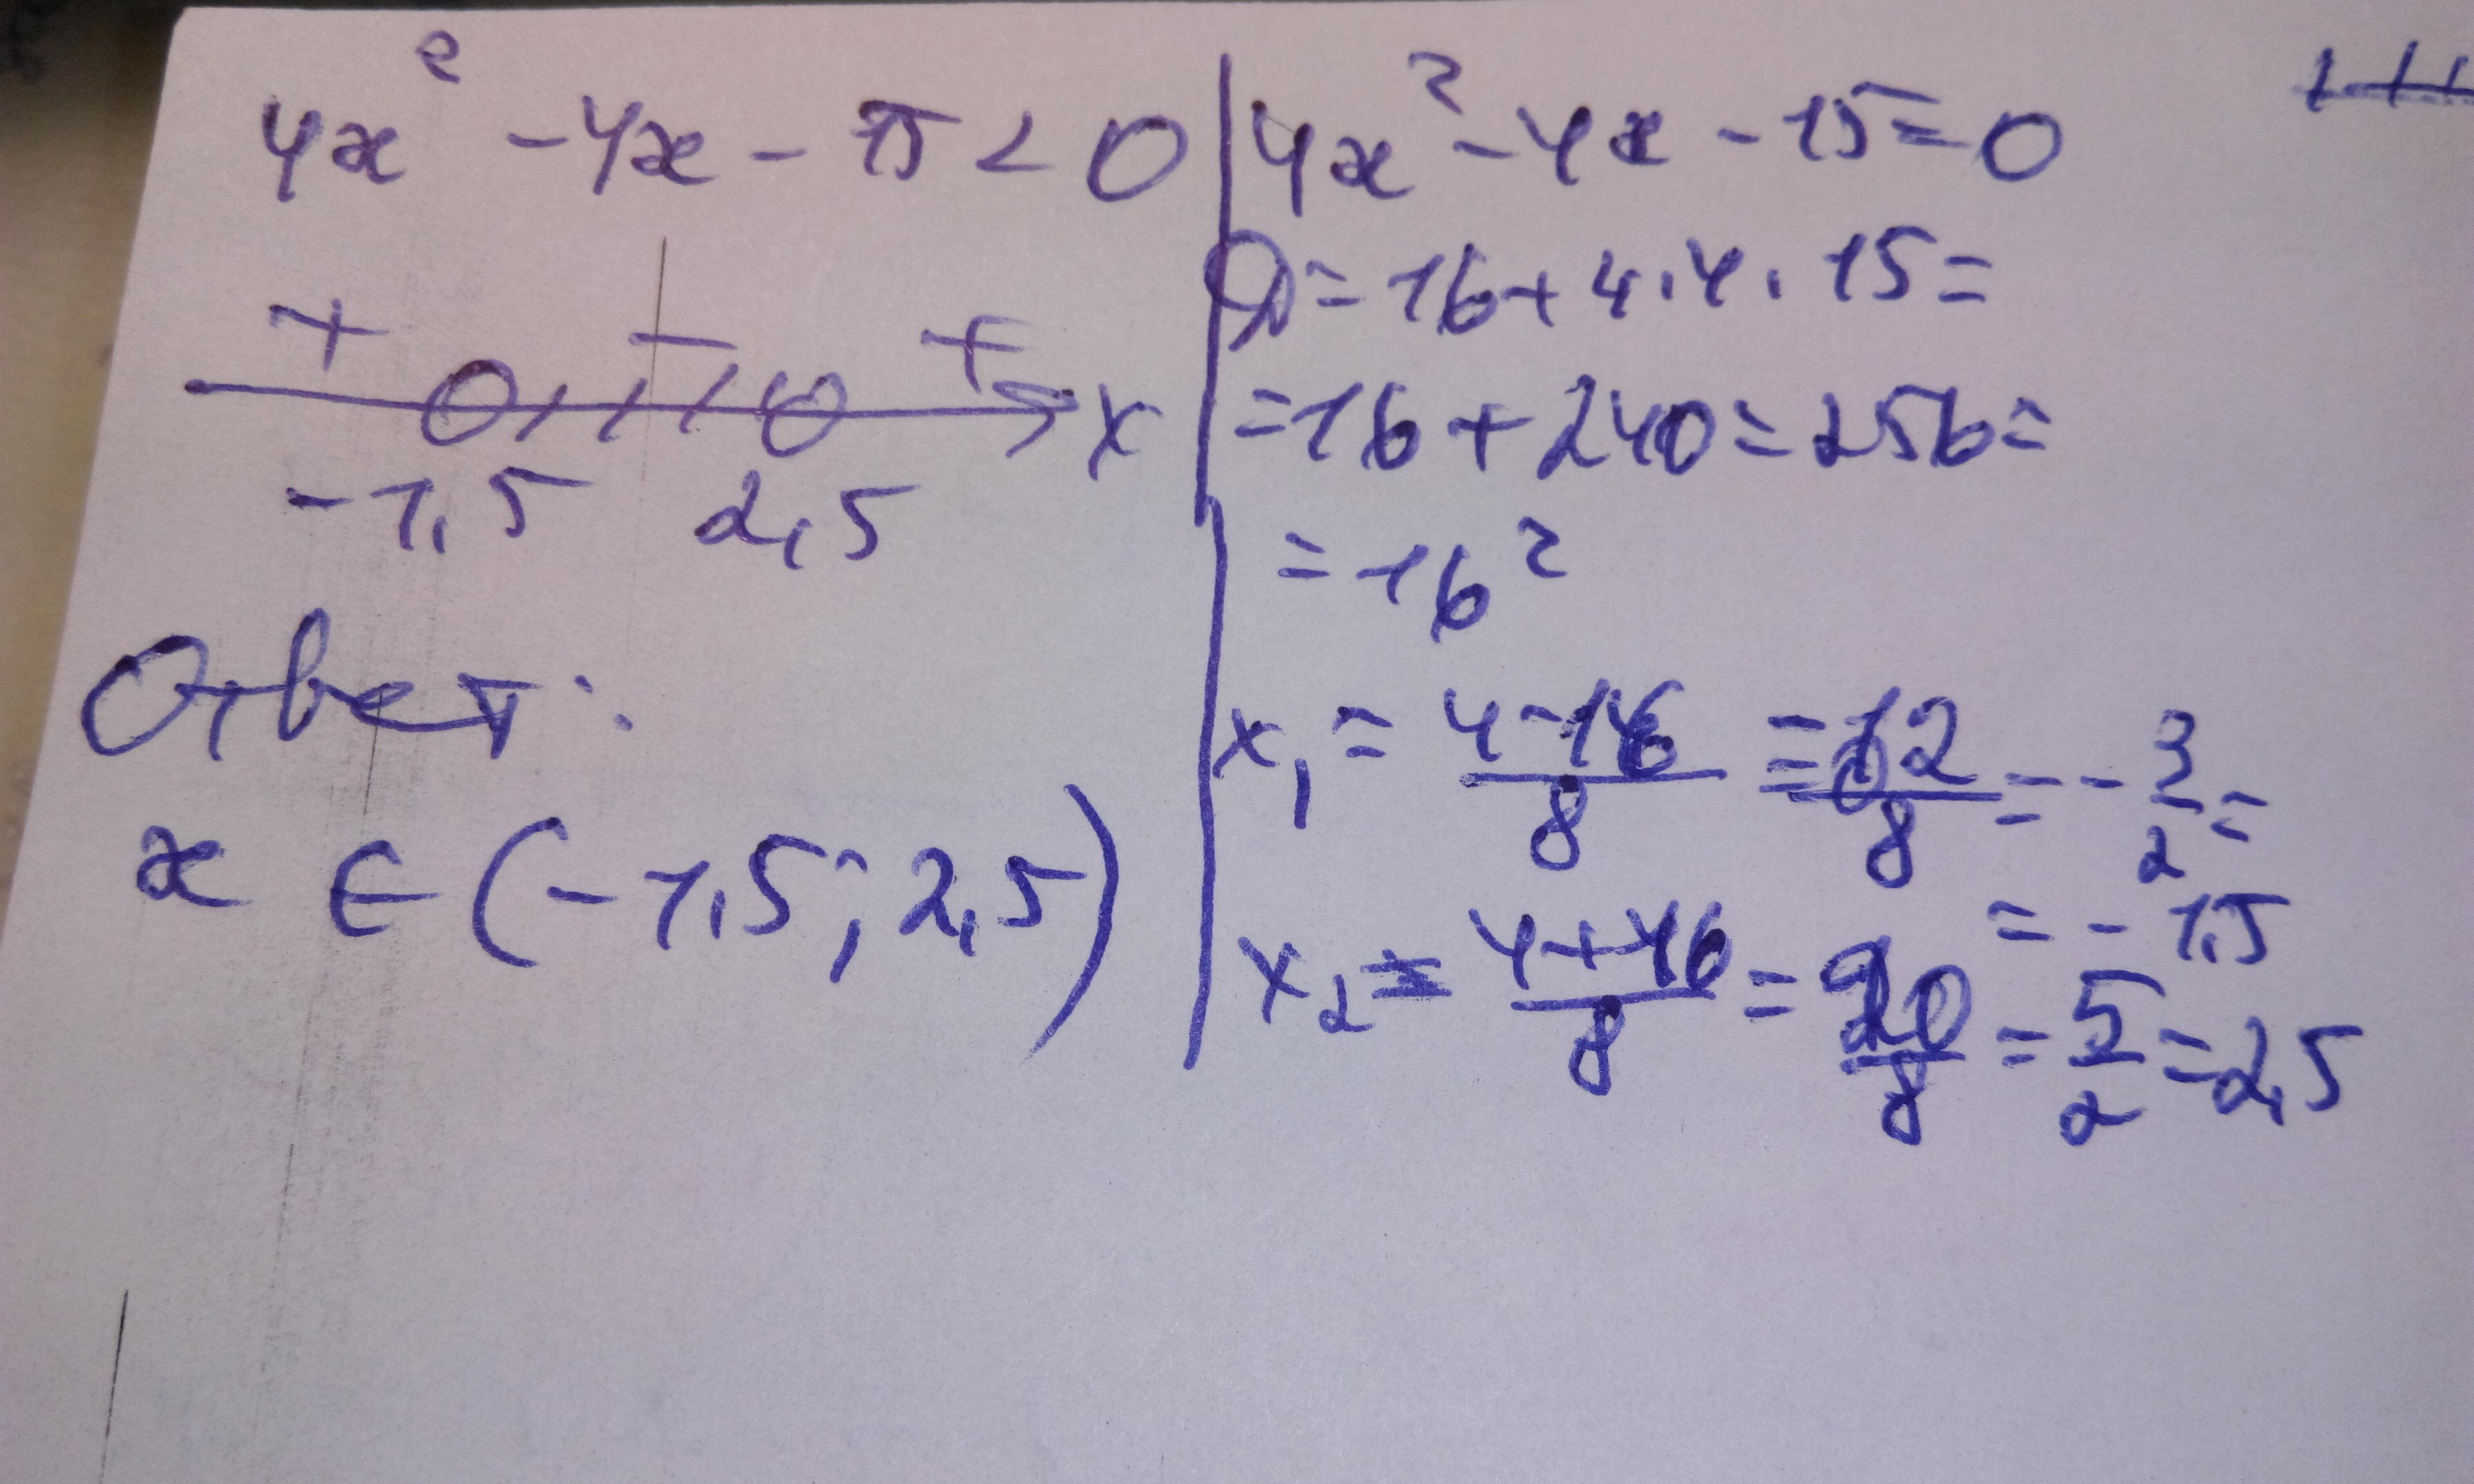 4x² - 4x - 15 < 0
+ - +
x
-1,5 2,5
Ответ:
x ∈ (-1,5; 2,5)
4x² - 4x - 15 = 0
D = 16 + 4·4·15 =
= 16 + 240 = 256 =
= 16²
x₁ = (4-16)/8 = -12/8 = -3/2 =
= -1,5
x₂ = (4+16)/8 = 20/8 = 5/2 = 2,5